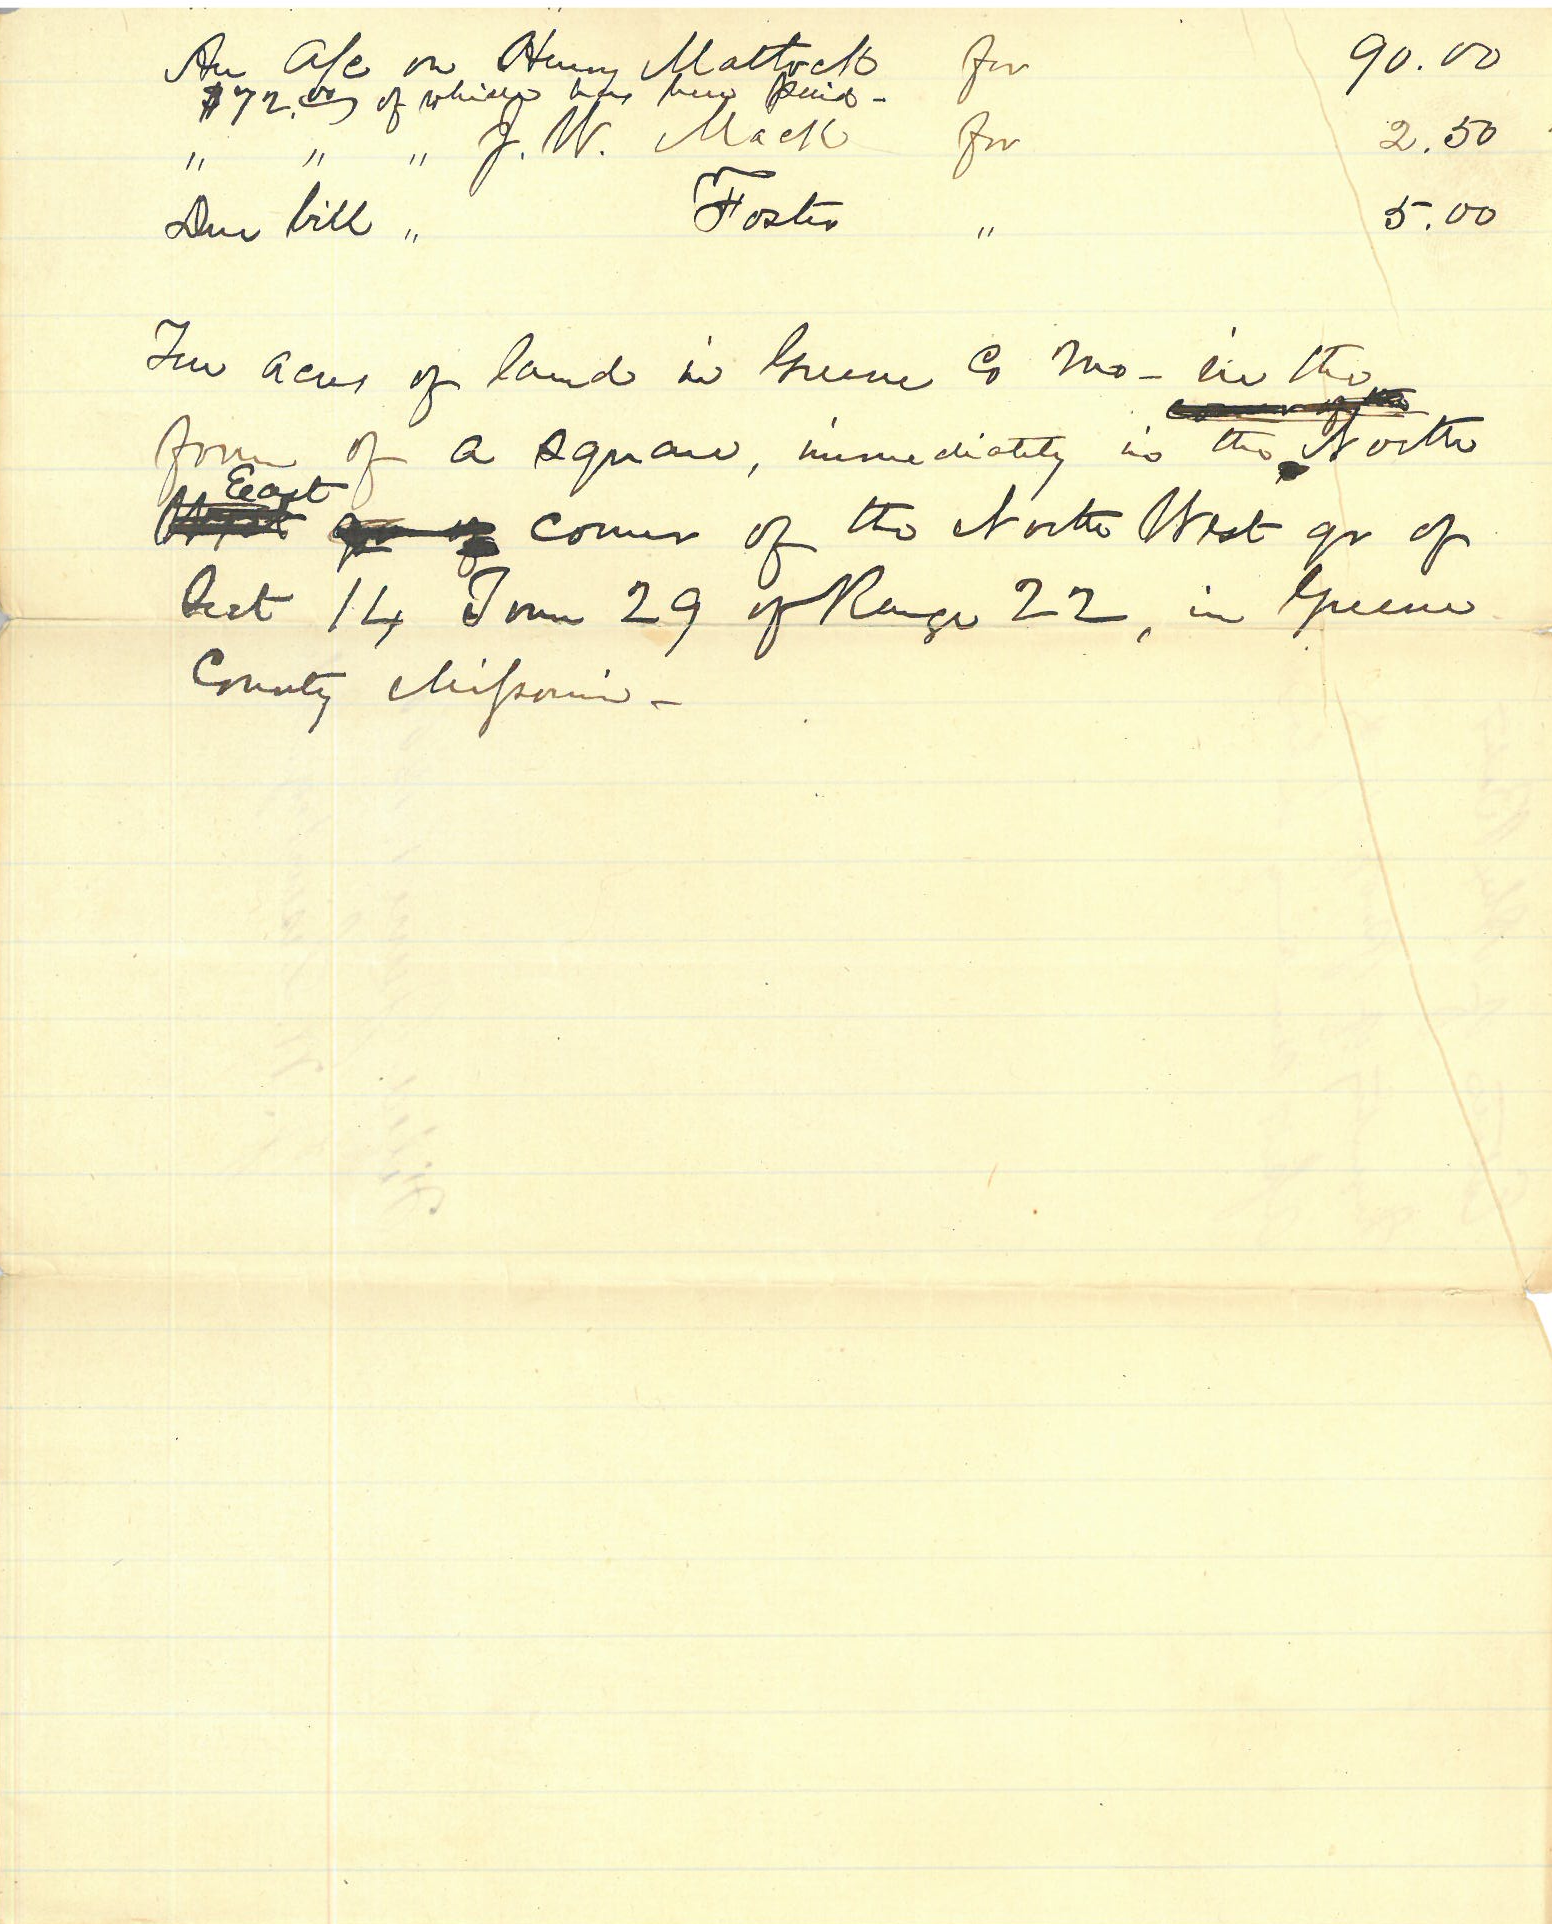 An A/c on Henry Mattock for 90.00
$72.00 of which has been paid -
" " " J. W. Mack for 2.50
Due bill " Foster " 5.00
Ten acres of land in Greene Co Mo - in the
form of a square, immediately in the North
East
corner of the North West qr of
Sect 14 Town 29 of Range 22, in Greene
County Missouri -